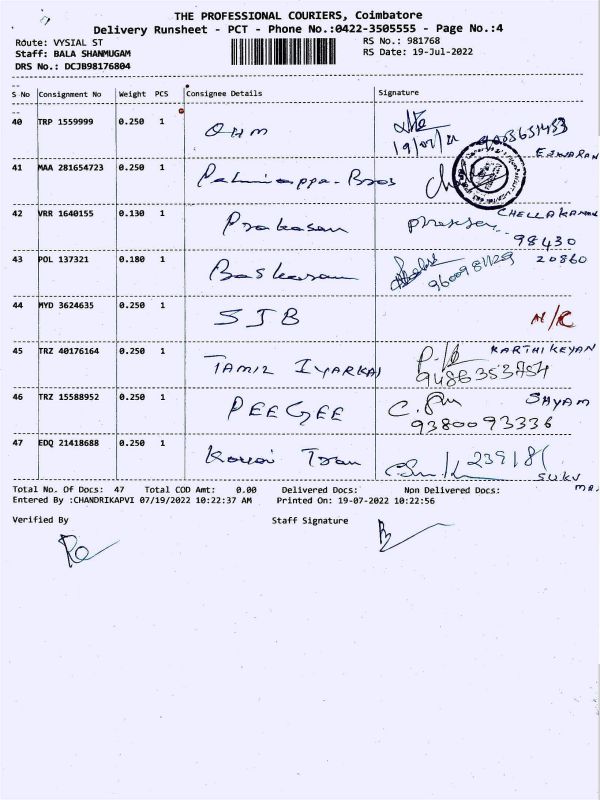 THE PROFESSIONAL COURIERS, Coimbatore
Delivery Runsheet - PCT - Phone No.:0422-3505555 - Page No.:4
Route: VYSIAL ST RS No.: 981768
Staff: BALA SHANMUGAM RS Date: 19-Jul-2022
DRS No.: DCJB98176804
S No Consignment No Weight PCS Consignee Details Signature
40 TRP 1559999 0.250 1 OHM 19/07/22
ESWARAN
41 MAA 281654723 0.250 1 Palaniappa-Bros
CHELLAKANNU
42 VRR 1640155 0.130 1 Prakasam
98430
43 POL 137321 0.180 1 Baskaran 20860
44 MYD 3624635 0.250 1 SJB N/R
45 TRZ 40176164 0.250 1 TAMIL IYARKAI KARTHIKEYAN
9486353754
46 TRZ 15588952 0.250 1 PEEGEE SHYAM
9380093336
47 EDQ 21418688 0.250 1 Kovai Tran 239181
Total No. Of Docs: 47 Total COD Amt: 0.00 Delivered Docs: Non Delivered Docs:
Entered By :CHANDRIKAPVI 07/19/2022 10:22:37 AM Printed On: 19-07-2022 10:22:56
Verified By Staff Signature